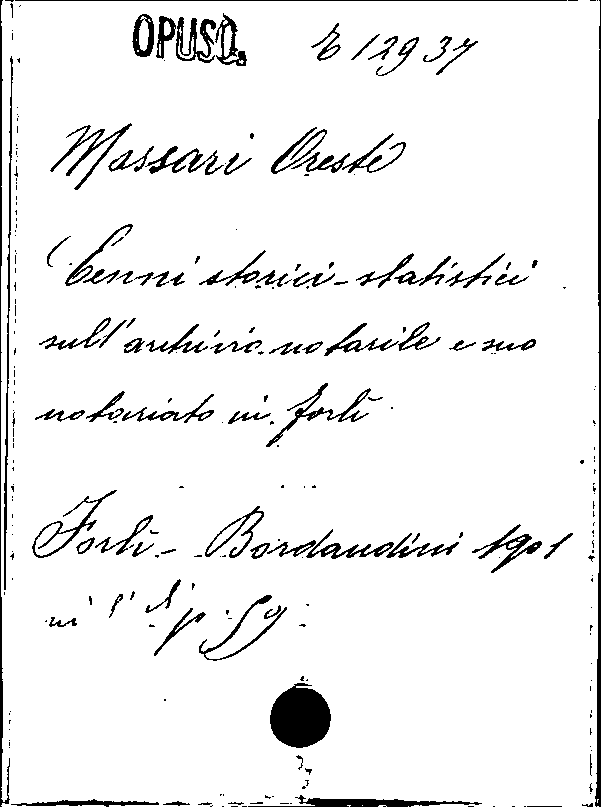 OPUSC. E 12937
Massari Oreste
Cenni storici-statistici
sull'archivio notarile e suo
notariato in Forlì
Forlì - Bordandini 1901
in p. 59